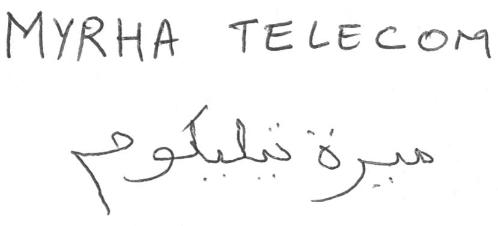 MYRHA TELECOM
ميرة تيليكوم